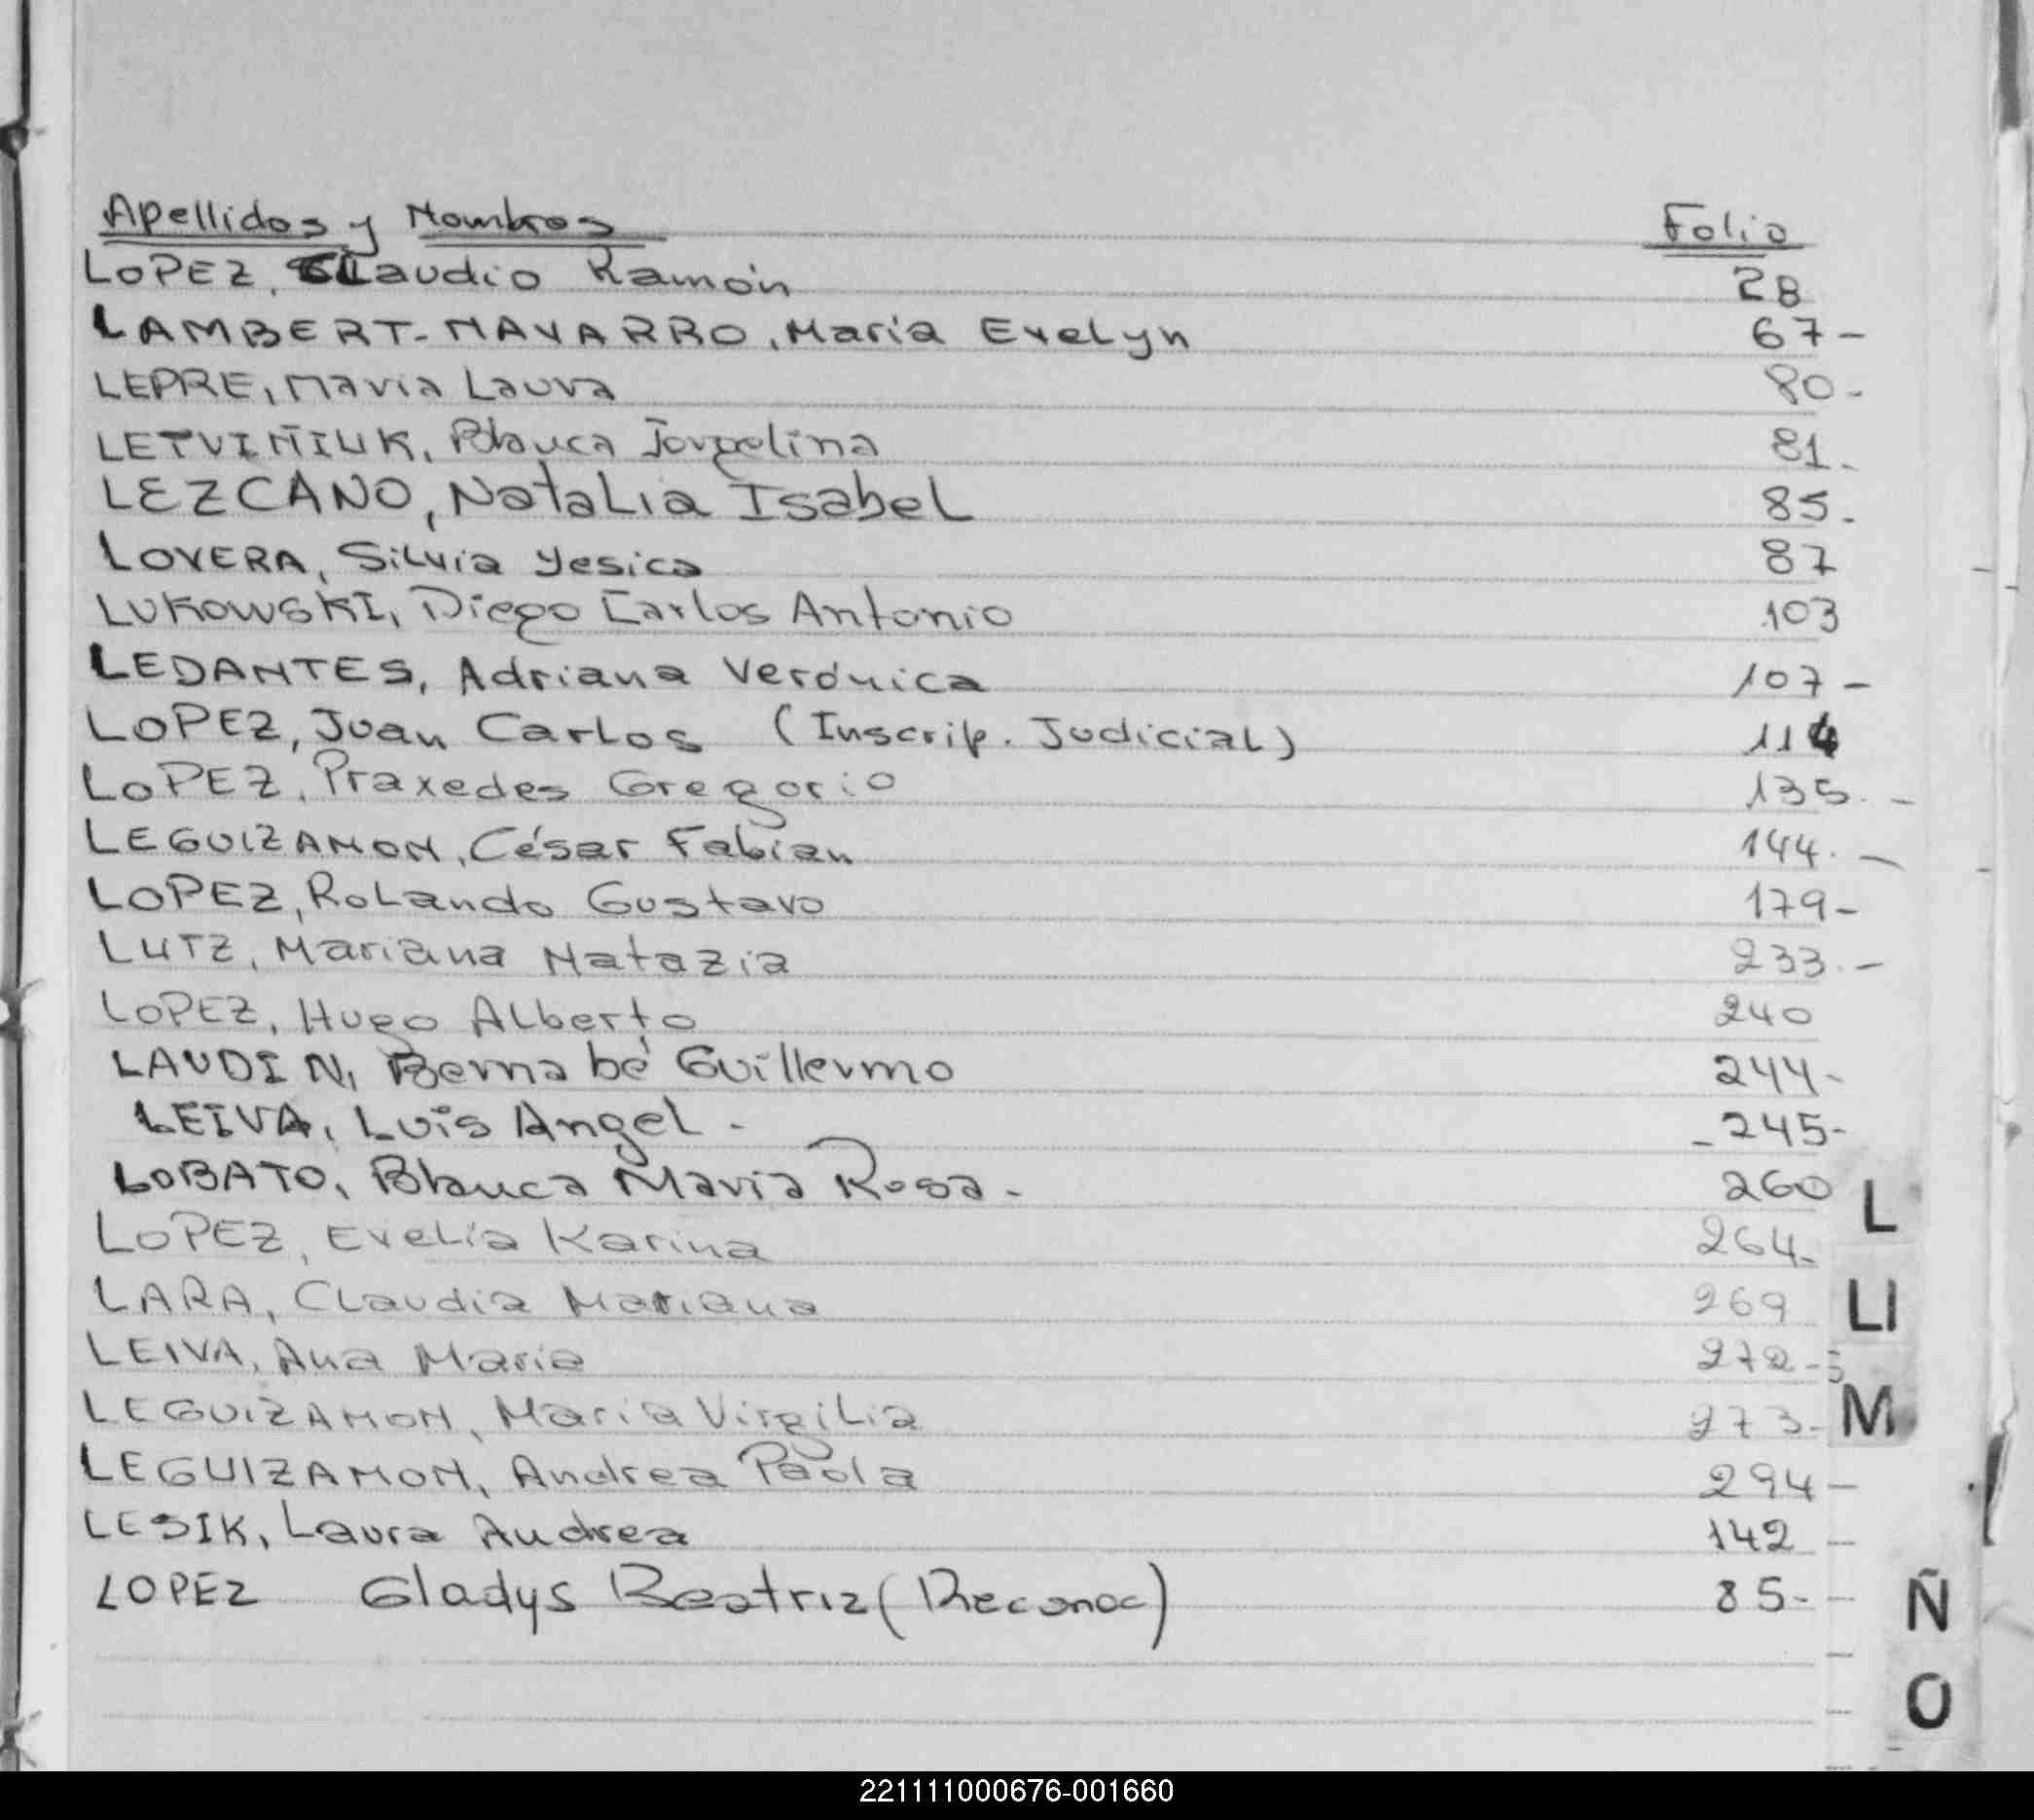 Apellidos y Nombres Folio
LOPEZ, Claudio Ramón 28
LAMBERT-NAVARRO, María Evelyn 67-
LEPRE, María Laura 80-
LETVIÑIUK, Blanca Jorgelina 81-
LEZCANO, Natalia Isabel 85-
LOVERA, Silvia Yesica 87
LUKOWSKI, Diego Carlos Antonio 103
LEDANTES, Adriana Verónica 107-
LOPEZ, Juan Carlos (Inscrip. Judicial) 114
LOPEZ, Praxedes Gregorio 135.-
LEGUIZAMON, César Fabian 144.-
LOPEZ, Rolando Gustavo 179-
LUTZ, Mariana Natazia 233.-
LOPEZ, Hugo Alberto 240
LAUDIN, Bernabé Guillermo 244-
LEIVA, Luis Angel - -245-
LOBATO, Blanca María Rosa - 260
L
LOPEZ, Evelia Karina 264-
LARA, Claudia Mariana 269
LL
LEIVA, Ana María 272-
LEGUIZAMON, María Virgilia 273-
M
LEGUIZAMON, Andrea Paola 294-
LESIK, Laura Andrea 142-
LOPEZ Gladys Beatriz (Reconoc) 85-
Ñ
O
221111000676-001660